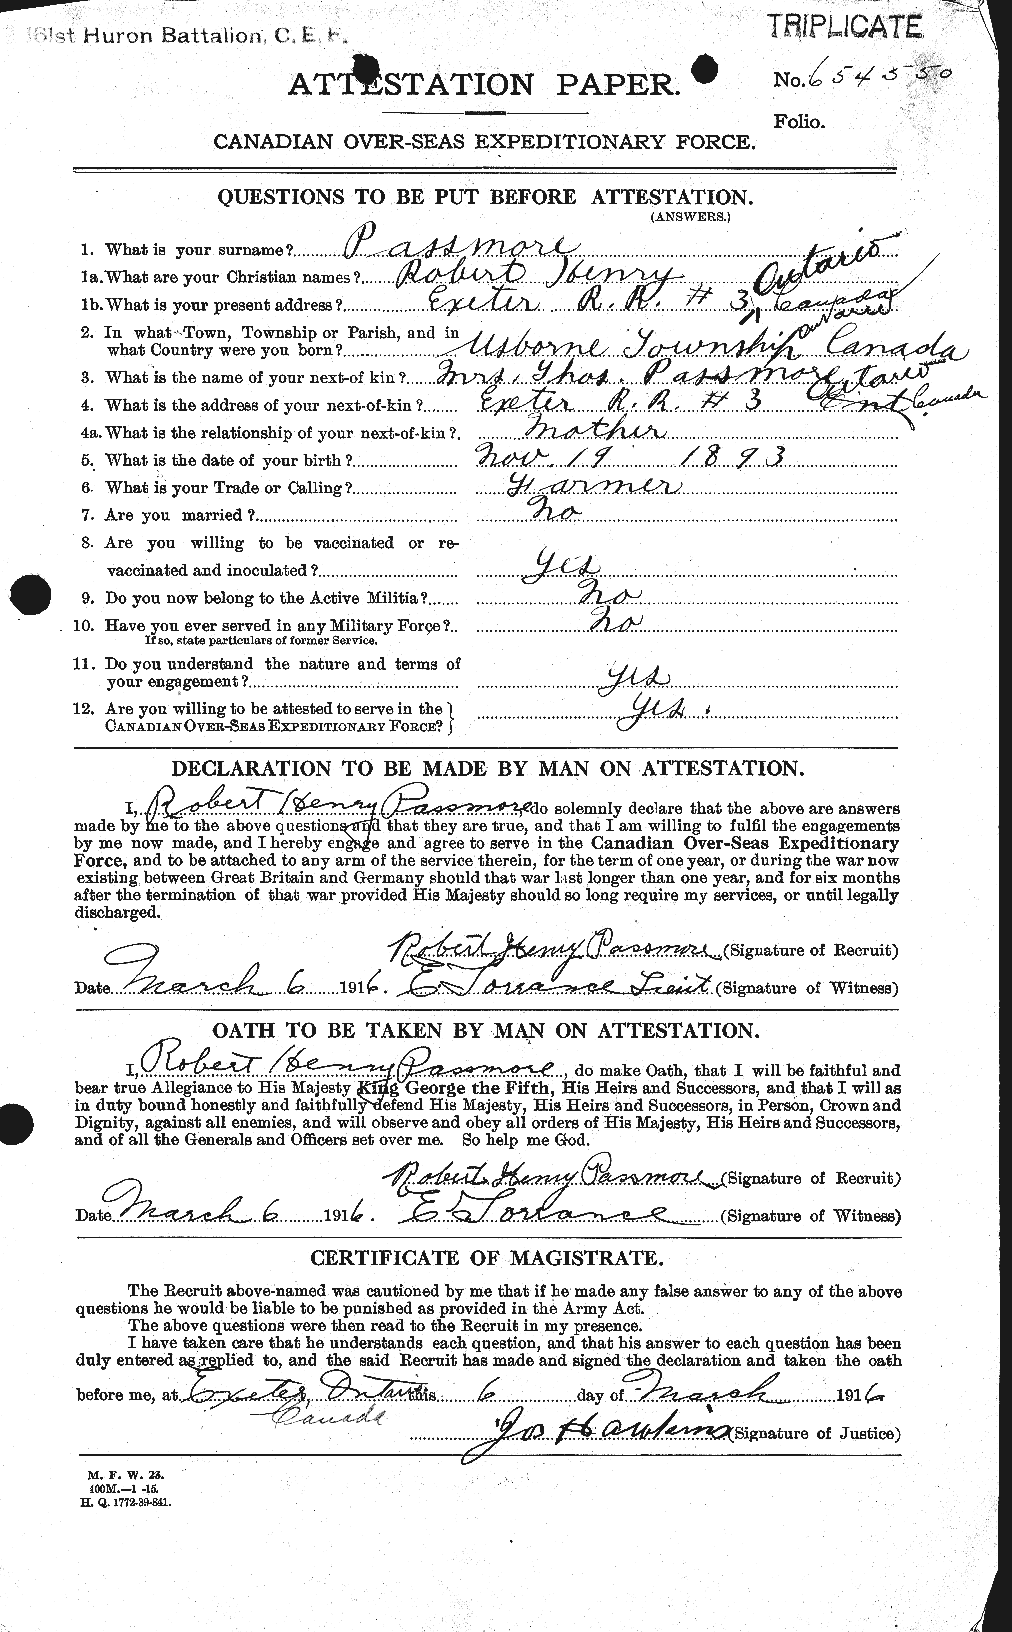 161st Huron Battalion, C. E. F.
TRIPLICATE
ATTESTATION PAPER.
No. 654550
Folio.
CANADIAN OVER-SEAS EXPEDITIONARY FORCE.
QUESTIONS TO BE PUT BEFORE ATTESTATION.
(ANSWERS.)
1. What is your surname? Passmore
1a. What are your Christian names? Robert Henry
1b. What is your present address? Exeter R.R. # 3 Ontario Canada
2. In what Town, Township or Parish, and in
what Country were you born? Usborne Township Ontario Canada
3. What is the name of your next-of kin? Mrs. Thos. Passmore
4. What is the address of your next-of-kin? Exeter R.R. # 3 Ont Ontario Canada
4a. What is the relationship of your next-of-kin? Mother
5. What is the date of your birth? Nov. 19 1893
6. What is your Trade or Calling? Farmer
7. Are you married? No
8. Are you willing to be vaccinated or re-
vaccinated and inoculated? Yes
9. Do you now belong to the Active Militia? No
10. Have you ever served in any Military Force? No
If so, state particulars of former Service.
11. Do you understand the nature and terms of
your engagement? Yes
12. Are you willing to be attested to serve in the
CANADIAN OVER-SEAS EXPEDITIONARY FORCE? } Yes.
DECLARATION TO BE MADE BY MAN ON ATTESTATION.
I, Robert Henry Passmore, do solemnly declare that the above are answers
made by me to the above questions and that they are true, and that I am willing to fulfil the engagements
by me now made, and I hereby engage and agree to serve in the Canadian Over-Seas Expeditionary
Force, and to be attached to any arm of the service therein, for the term of one year, or during the war now
existing between Great Britain and Germany should that war last longer than one year, and for six months
after the termination of that war provided His Majesty should so long require my services, or until legally
discharged.
Robert Henry Passmore (Signature of Recruit)
Date March 6 1916. E Torrance Lieut (Signature of Witness)
OATH TO BE TAKEN BY MAN ON ATTESTATION.
I, Robert Henry Passmore, do make Oath, that I will be faithful and
bear true Allegiance to His Majesty King George the Fifth, His Heirs and Successors, and that I will as
in duty bound honestly and faithfully defend His Majesty, His Heirs and Successors, in Person, Crown and
Dignity, against all enemies, and will observe and obey all orders of His Majesty, His Heirs and Successors,
and of all the Generals and Officers set over me. So help me God.
Robert Henry Passmore (Signature of Recruit)
Date March 6 1916. E Torrance (Signature of Witness)
CERTIFICATE OF MAGISTRATE.
The Recruit above-named was cautioned by me that if he made any false answer to any of the above
questions he would be liable to be punished as provided in the Army Act.
The above questions were then read to the Recruit in my presence.
I have taken care that he understands each question, and that his answer to each question has been
duly entered as replied to, and the said Recruit has made and signed the declaration and taken the oath
before me, at Exeter, Ontario this 6 day of March 1916
Canada
Jos Hawkins (Signature of Justice)
M. F. W. 23.
400M.—1 -15.
H. Q. 1772-39-841.